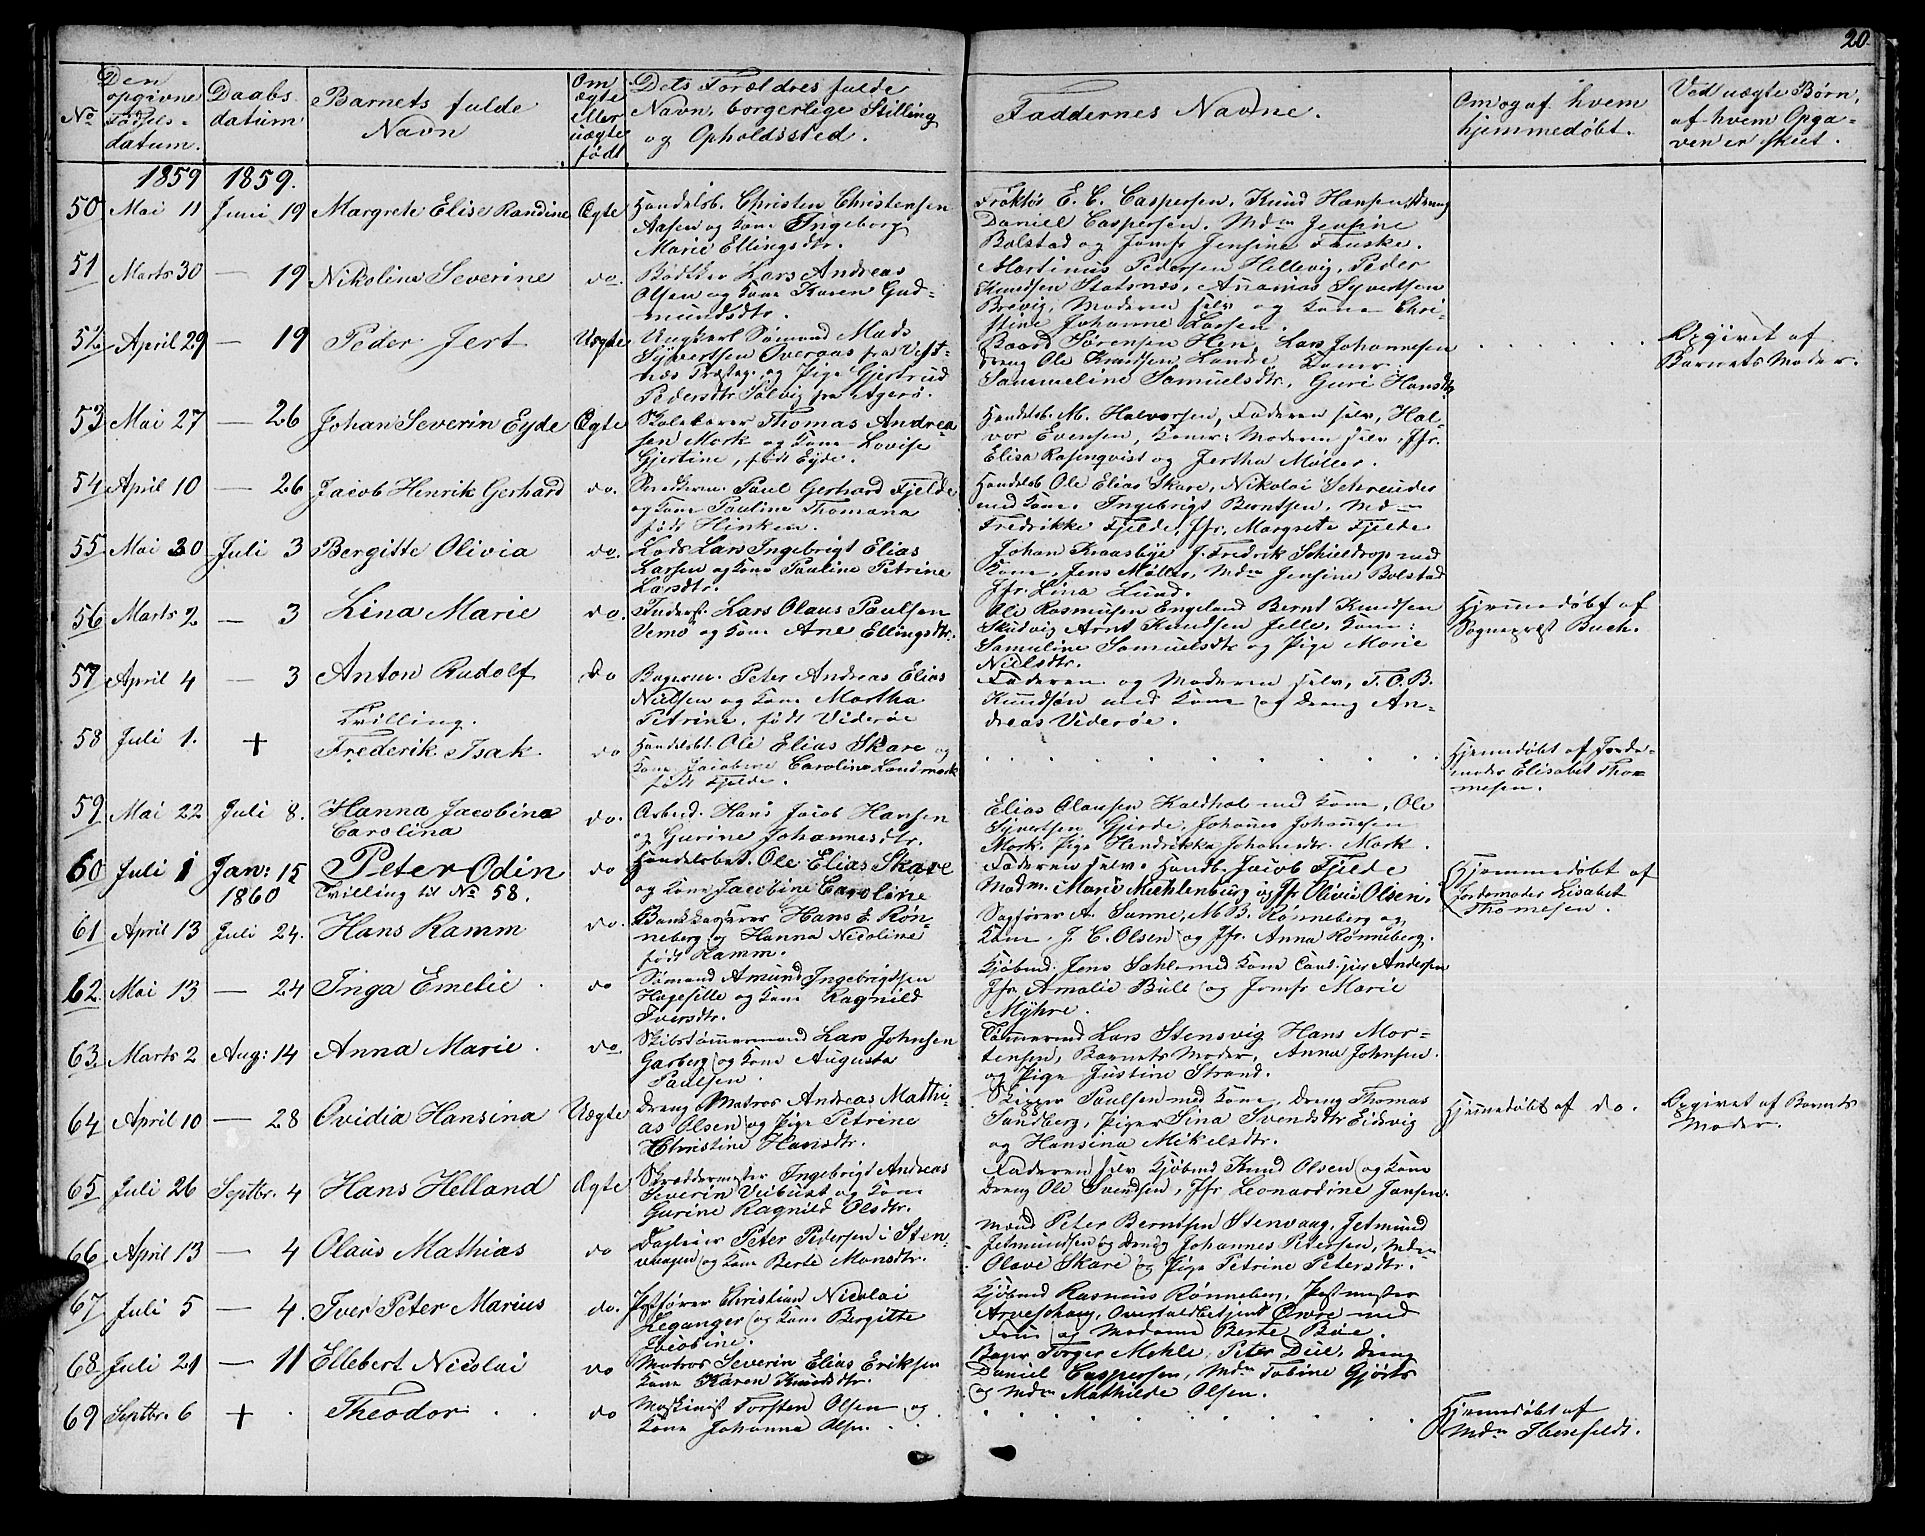 20.
No
Den opgivne Fødselsdatum.
Daabs datum
Barnets fulde Navn
Om ægte eller uægte født
Dets Forældres fulde Navn, borgerlige Stilling og Opholdssted.
Faddernes Navne.
Om og af hvem hjemmedøbt.
Ved uægte Børn, af hvem Opgaven er skeet.
1859 1859.
50 Mai 11 Juni 19 Margrete Elise Randine Ægte
Handelsb. Christen Christensen
Aasen og Kone Ingeborg
Marie Ellingsdtr.
E. C. Caspersen, Knud Hansen, Dreng
Daniel Caspersen, Mdm Jensine
Bolstad og Jomfr Jensine Fauske.
51 Marts 30 — 19 Nikoline Severine do.
Bødtker Lars Andreas
Olsen og Kone Karen Gud-
mundsdtr.
Martinus Pedersen Hellevig, Peder
Knudsen Statsnæs, Ananias Syvertsen
Brevig, Moderen selv og Kone Chri-
stine Johanne Larsen.
52 April 29 — 19 Peder Jert Uægte
Ungkarl Sømand Mads
Syvertsen Overaas fra Vest-
næs Præsteg. og Pige Gjertrud
Pedersdtr Solvig fra Agerø.
Baard Sørensen Hen, Lars Johannesen
Dreng Ole Knudsen Lande, Koner:
Sammeline Samuelsdtr, Guri Hansdtr
Opgivet af
Barnets Moder.
53 Mai 27 — 26 Johan Severin Eyde Ægte
Skolelærer Thomas Andrea-
sen Mork og Kone Lovise
Gjertine, født Eyde.
Handelsb. M. Halvorsen, Faderen selv, Hal-
vor Evensen, Koner: Moderen selv, Jfr.
Elisa Rosenqvist og Jertha Møller.
54 April 10 — 26 Jacob Henrik Gerhard do.
Paul Gerhard Fjelde
og Kone Pauline Thomana
født Hinken.
Handelsb Ole Elias Skare, Nikolai Schreuder
med Kone, Ingebrigt Berntsen, Mdm
Fredrikke Fjelde, Jfr. Margrete Fjelde
55 Mai 30 Juli 3 Bergitte Olivia do.
Lods Lars Ingebrigt Elias
Larsen og Kone Pauline Petrine
Larsdtr.
Johan Kraasbye, J. Fredrik Schieldrop med
Kone, Jens Møller, Mdm Jensine Bolstad
Jfr. Lina Lund.
56 Marts 2 — 3 Lina Marie do.
Inderst. Lars Olaus Paulsen
Vemo og Kone Ane Ellingsdtr.
Ole Rasmusen Engeland Bernt Knudsen
Skudvig Arnt Knudsen Jelle, Kone:
Samuline Samuelsdtr og Pige Marie
Nielsdtr.
Hjemmedøbt af
Sognepræst Buch.
57 April 4 — 3 Anton Rudolf do
Bagersv. Peter Andreas Elias
Nielsen og Kone Martha
Petrine, født Viderøe
Faderen og Moderen selv, T. O. B.
Knudsøn med Kone og Dreng An-
dreas Viderøe.
58 Juli 1. +
Tvilling.
Frederik Isak do
Handelsbt. Ole Elias Skare og
Kone Jacobine Caroline Landmark
født Fjelde.
Hjemmedøbt af Jorde-
moder Elisabet Tho-
mesen.
59 Mai 22 Juli 8. Hanna Jacobina
Carolina do.
Arbeid. Hans Jacob Hansen
og Gurine Johannesdtr.
Elias Olausen Kaldhol med Kone, Ole
Syvertsen Gjerde, Johanes Johanesen
Mork. Pige Hendrikka Johanesdtr. Mork.
60 Juli 1 Jan: 15 Peter Odin do
1860 Tvilling til No 58.
Handelsbet. Ole Elias Skare
og Kone Jacobine Caroline
Faderen selv. Handb. Jacob Fjelde
Madm. Marie Mechlenburg og Jfr Olivia Olsen.
Hjemmedøbt af
Jordemoder Lisabet
Thomesen.
61 April 13 Juli 24. Hans Ramm do.
Bankkasserer Hans E. Røn-
neberg og Hanna Nicoline
født Ramm.
Sagfører A. Sunne, M. B. Rønneberg og
Kone, J. C. Olsen og Jfr. Anna Rønneberg.
62. Mai 13 — 24 Inga Emelie do
Sømand Amund Ingebrigtsen
Hageselle og Kone Ragnild
Iversdtr.
Kjøbmd. Jens Dahl med Kone, Andersen
Jfr. Amalie Bull og Jomfr Marie
Myhre.
63. Marts 2 Aug: 14 Anna Marie do
Skibstømmermand Lars Johnsen
Garberg og Kone Augusta
Paulsen.
Tømmermd Lars Stensvig, Hans Mor-
tensen, Barnets Moder, Anna Johnsen.
og Pige Justine Strand.
64 April 10 — 28 Ovidia Hansina Uægte
Dreng Matros Andreas Mathi-
as Olsen og Pige Petrine
Christine Hansdtr.
Skipper Paulsen med Kone, Dreng Thomas
Sandberg, Piger Sina Svendsdtr Eidsvig
og Hansina Mikelsdtr.
Hjemmedøbt af do.
Opgivet af Barnets
Moder.
65 Juli 26 Septbr. 4 Hans Helland Ægte
Skræddermester Ingebrigt Andreas
Severin Veibust og Kone
Gurine Ragnild Olsdtr.
Faderen selv Kjøbmd Knud Olsen og Kone
Dreng Ole Svendsen, Jfr Leonardine Jansen.
66 April 13 — 4 Olaus Mathias do
Dagleier Peter Pedersen i Sten-
vaagen og Kone Berte Monsdtr.
Mænd Peter Berntsen Stenvaag, Jetmund
Jetmundsen og Dreng Johannes Petersen, Mdm
Olave Skare og Pige Petrine Petersdtr.
67 Juli 5 — 4. Iver Peter Marius do.
Christian Nicolai
Leganger og Kone Bergitte
Jacobine.
Kjøbmd Rasmus Rønneberg, Postmester
Areschoug, Overtoldbetjent Øwre med
Frue og Madame Berte Bøe.
68 Juli 21 — 11 Ellebert Nicolai do
Matros Severin Elias Eriksen
Kone Karen Knudsdtr.
Bager Torger Mohle, Peter Due, Dreng
Daniel Caspersen, Mdm Tobine Gjørts
og Mdm Mathilde Olsen.
69 Septbr. 6 + Theodor do
Maskinist Torsten Olsen og
Kone Johanna Olsen.
Hjemmedøbt af
Mdm Ibenfeldt.